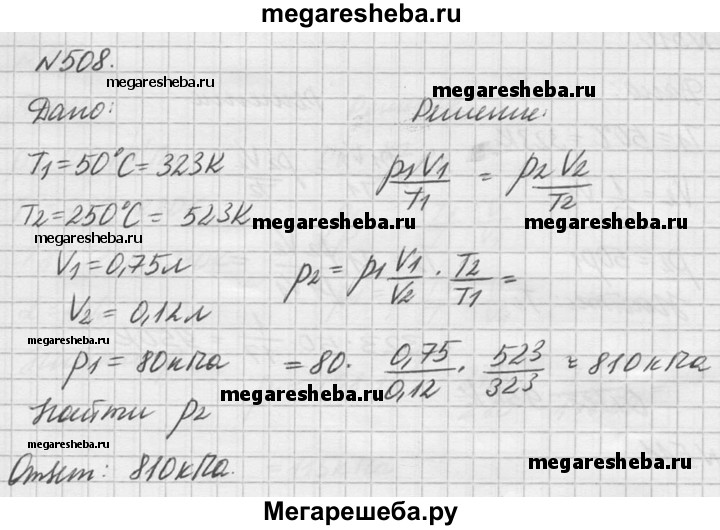 megaresheba.ru
N508.
megaresheba.ru
Дано:
megaresheba.ru
Решение:
T1=50°C=323К
p1V1/T1 = p2V2/T2
T2=250°C= 523К
megaresheba.ru
megaresheba.ru
V1=0,75л
p2=p1 V1/V2 · T2/T1 =
V2=0,12л
megaresheba.ru
p1=80кПа
=80· 0,75/0,12 · 523/323 ≈ 810кПа
megaresheba.ru
megaresheba.ru
Найти p2
megaresheba.ru
Ответ: 810кПа.
megaresheba.ru
megaresheba.ru
Мегарешеба.ру